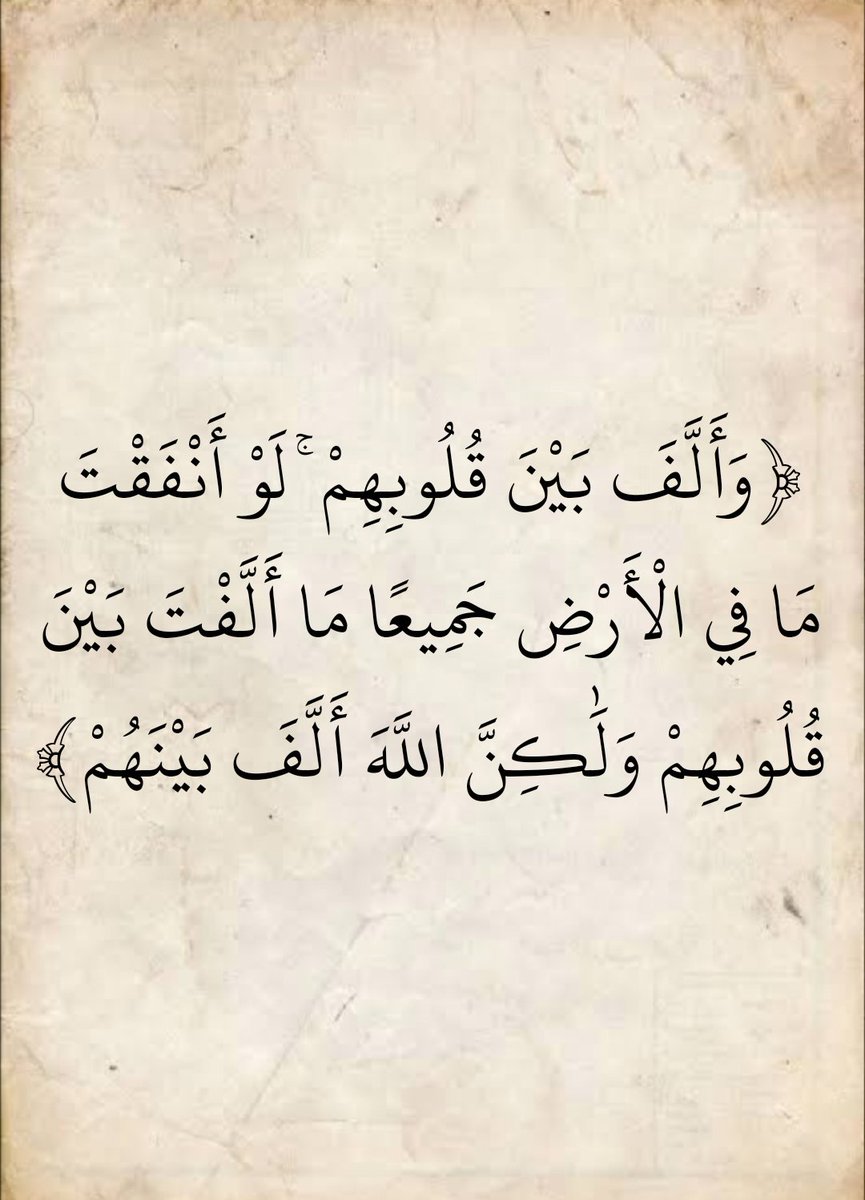 ﴿وَأَلَّفَ بَيْنَ قُلُوبِهِمْ ۚ لَوْ أَنْفَقْتَ
مَا فِي الْأَرْضِ جَمِيعًا مَا أَلَّفْتَ بَيْنَ
قُلُوبِهِمْ وَلَٰكِنَّ اللَّهَ أَلَّفَ بَيْنَهُمْ﴾